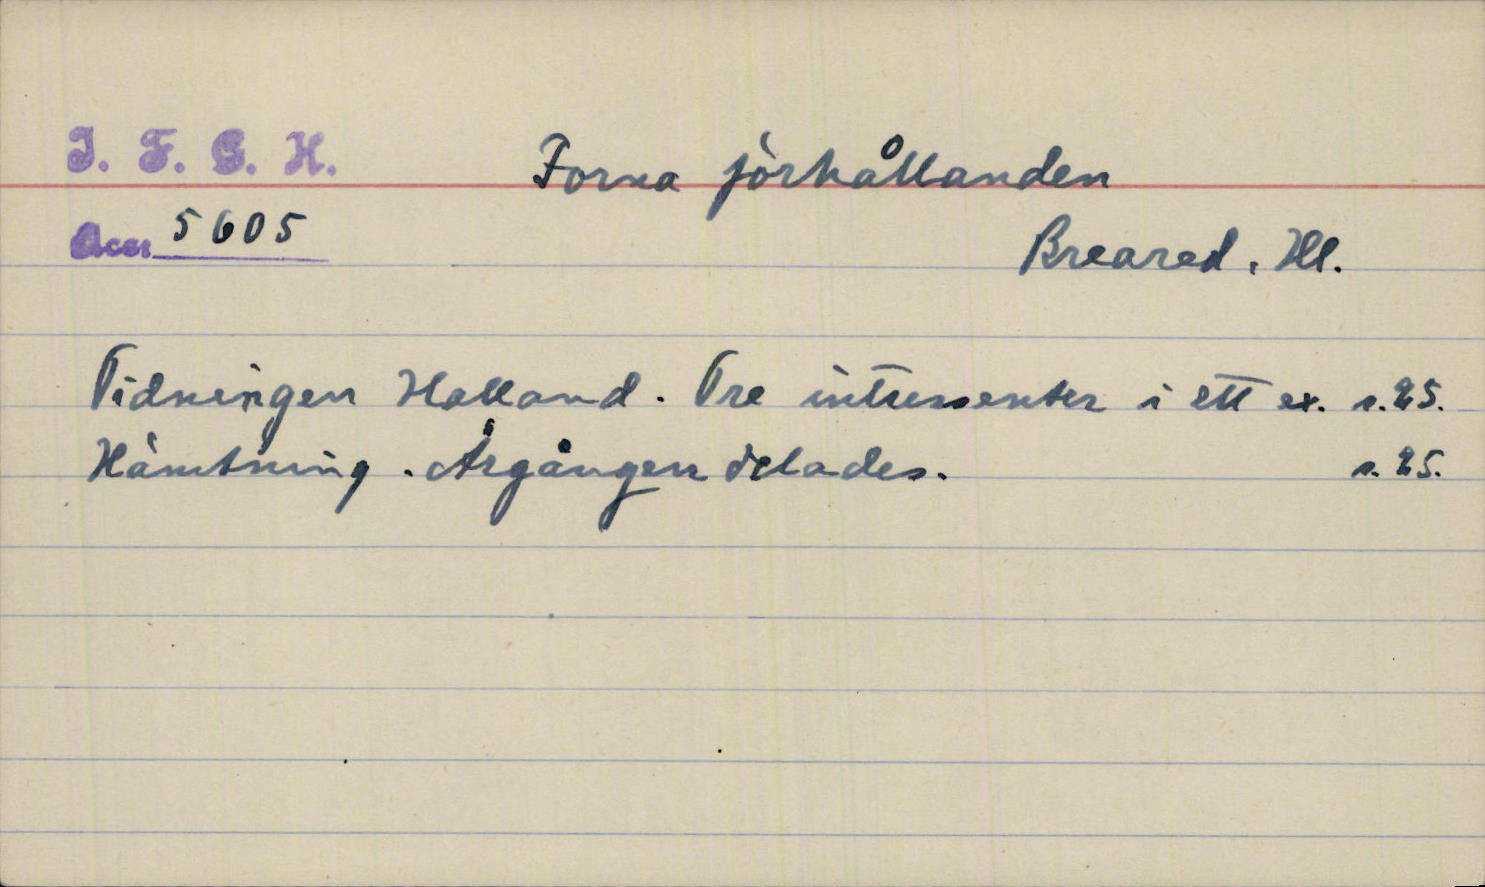 I. F. G. H. Forna förhållanden
Acc. 5605
Breared, Hl.
Tidningen Halland. Tre intressenter i ett ex. s. 25.
Hämtning. Årgången delades. s. 25.